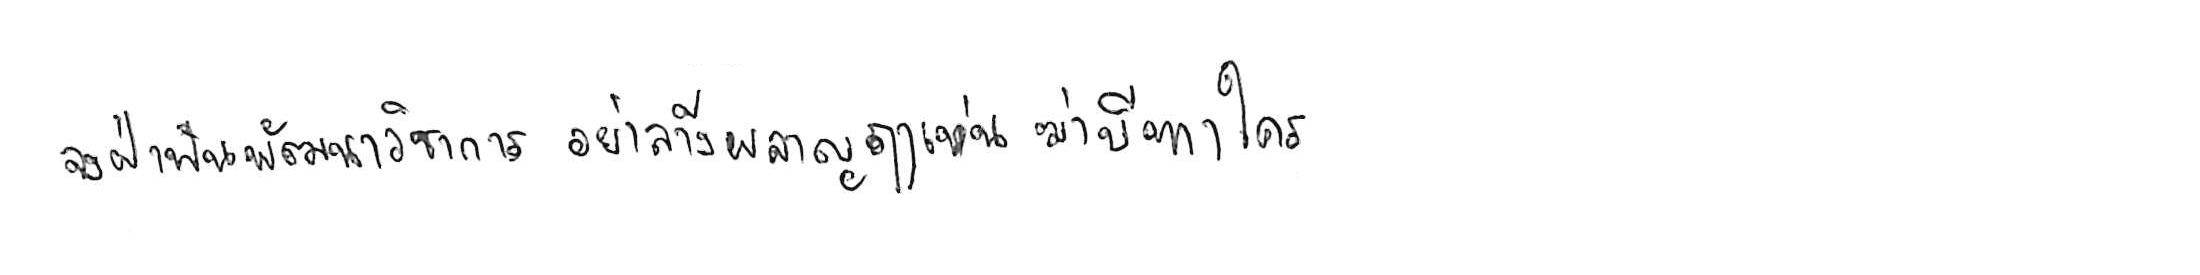 จงฝ่าฟันพัฒนาวิชาการ อย่าล้างผลาญฤๅเข่น ฆ่าบีฑาใคร